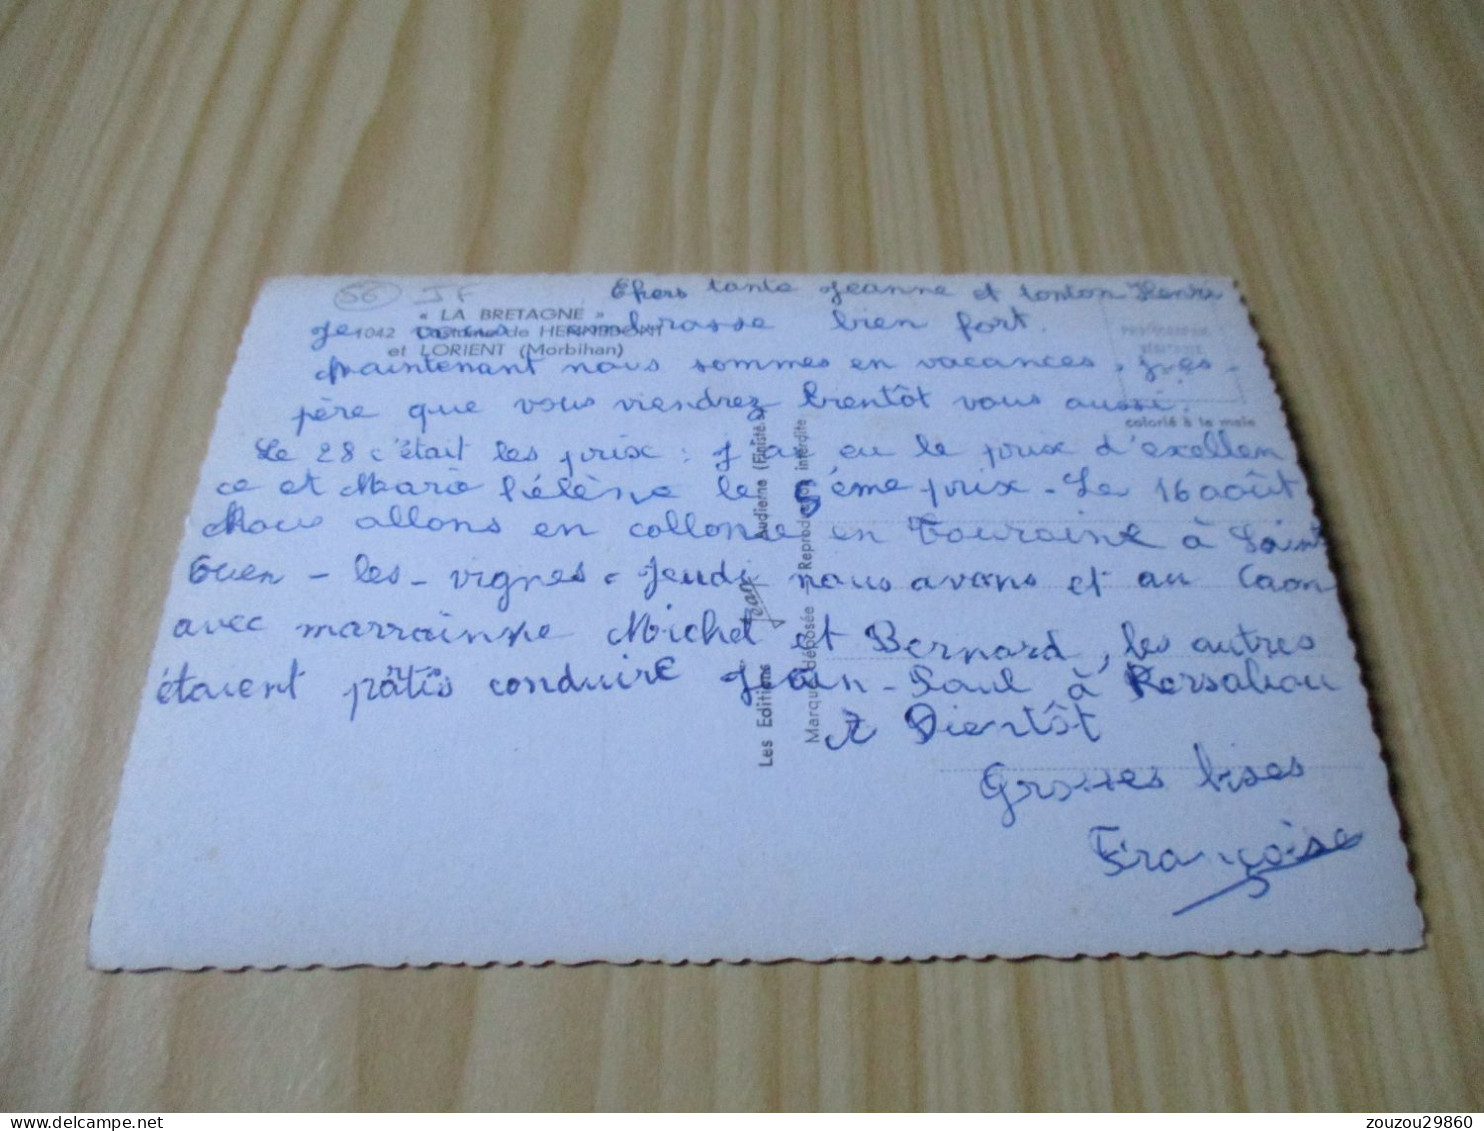 56 JF
« LA BRETAGNE »
1042 de HENNEBONT
et LORIENT (Morbihan)
Chers tante Jeanne et tonton Henri
Je vous embrasse bien fort.
Maintenant nous sommes en vacances, j'es-
père que vous viendrez bientôt vous aussi.
colorié à la main
Le 28 c'était les prix : J'ai eu le prix d'excellen
ce et Marie hélène le 5ème prix - Le 16 août
Nous allons en collonie en Touraine à Saint
Ouen - les - vignes. Jeudi nous avons et au
avec marrainne Michel et Bernard, les autres
étaient pâtis conduire Jean-Paul à
A Bientôt
Grosses bises
Françoise
Les Editions Jean Audierne (Finistè
Marque déposée - Reproduction interdite
zouzou29860